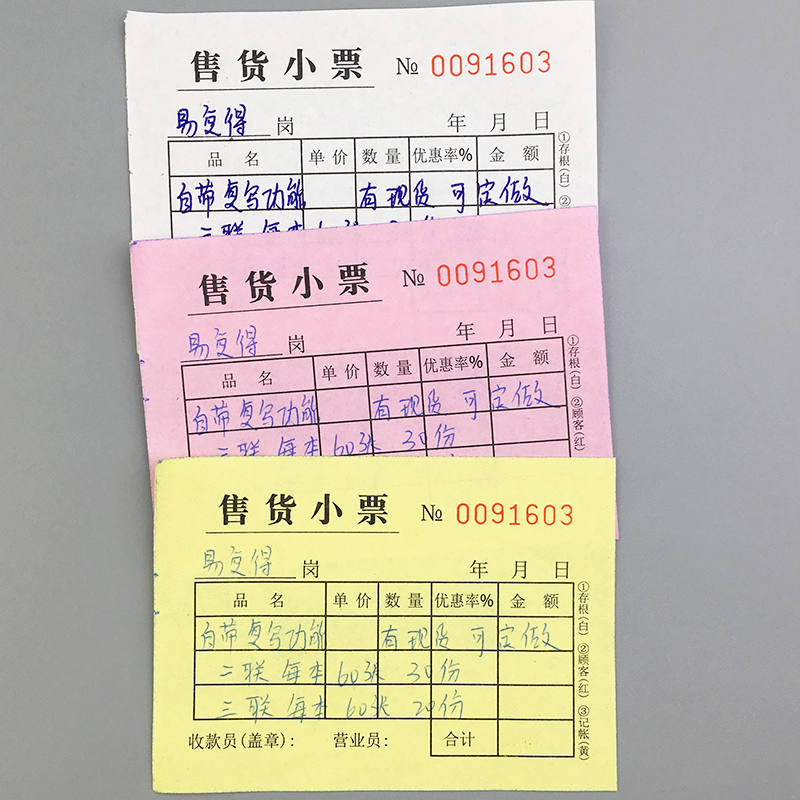 售货小票 № 0091603
易复得 岗 年 月 日
品名 单价 数量 优惠率% 金额
自带复写功能 有现货可定做
三联 每本
①存根(白) ②
售货小票 № 0091603
易复得 岗 年 月 日
品名 单价 数量 优惠率% 金额
自带复写功能 有现货可定做
三联 每本 60张 30份
①存根(白) ②顾客(红)
售货小票 № 0091603
易复得 岗 年 月 日
品名 单价 数量 优惠率% 金额
自带复写功能 有现货可定做
二联 每本 60张 30份
三联 每本 60张 20份
收款员(盖章): 营业员: 合计
①存根(白) ②顾客(红) ③记帐(黄)